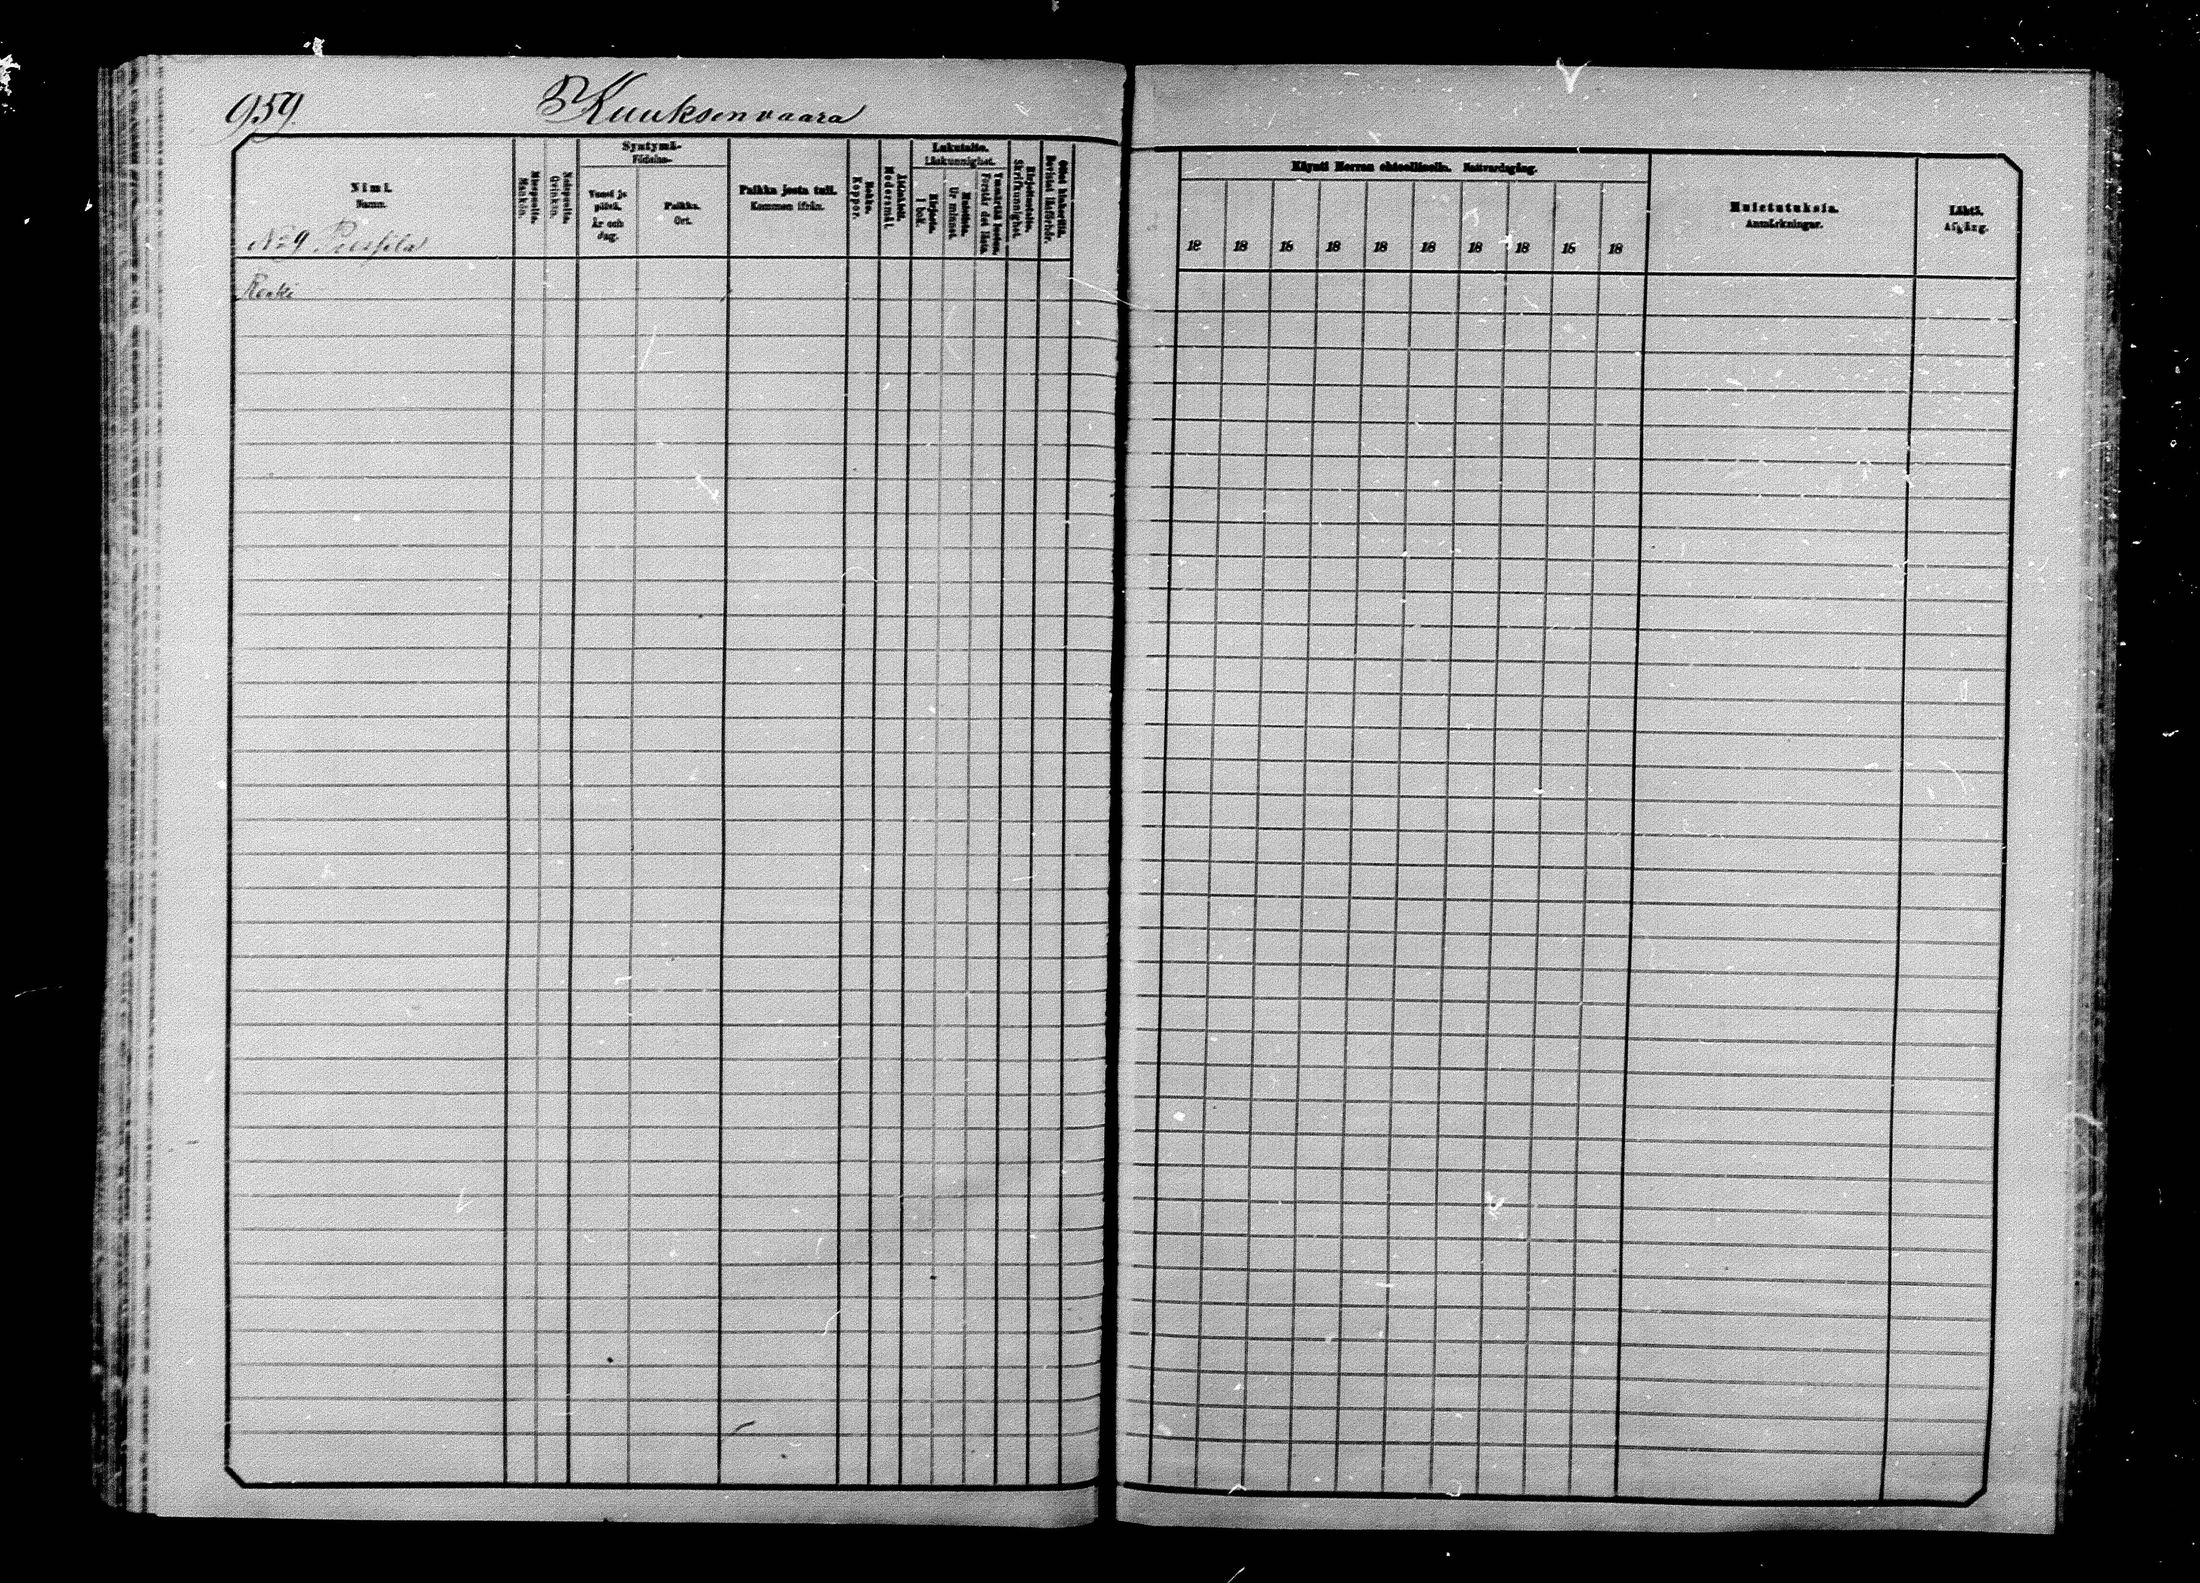 959.
Kuuksenvaara
Nimi.
Namn.
No 9
Miespuolia.
Mankön.
Naispuolia.
Qvinkön.
Syntymä-
Födelse-
Vuosi ja päivä.
År och dag.
Paikka.
Ort.
Paikka josta tuli.
Kommen ifrån.
Rokko.
Koppor.
Äidinkieli.
Modersmål.
Lukutaito.
Läskunnighet.
Kirjasta.
I bok.
Muistista.
Ur minnet.
Ymmärtää luetun.
Förstår det lästa.
Kirjoitustaito.
Skrifkunnighet.
Ollut lukusilla.
Bevistat läsförhör.
Renki
Käynti Herran ehtoollisella. Nattvardsgång.
18 18 18 18 18 18 18 18 18 18
Muistutuksia.
Anmärkningar.
Lähtö.
Afgång.